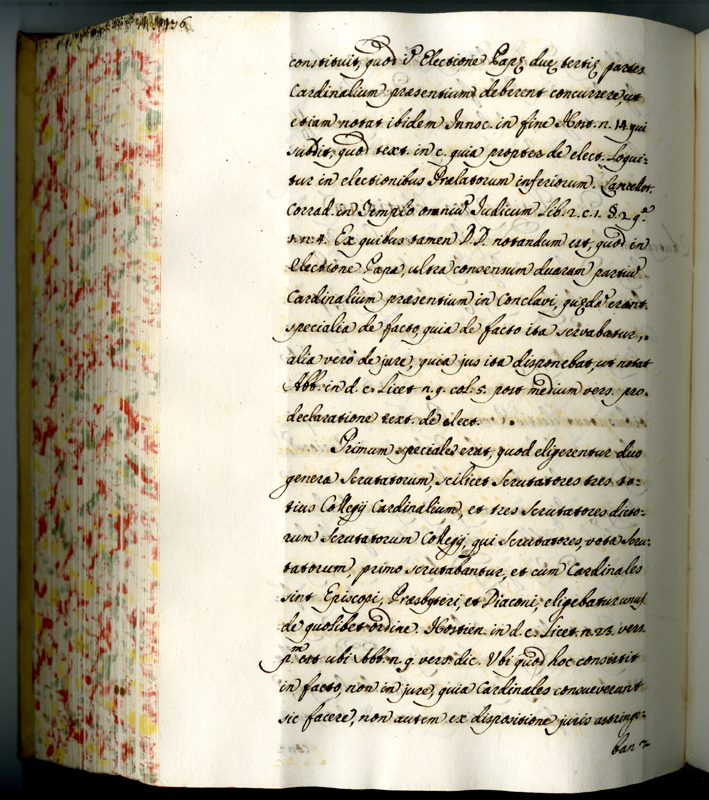 136
constituit, quod iñ Electione Papę duę tertię partes
Cardinalium præsentium deberent concurrere, ut
etiam notat ibidem Innoc. in fine Host. n. 14. qui
subdit, quod text. in c. quia propter de elect. Loqui-
tur in electionibus Prælatorum inferiorum. Lancelot.
Corrad. in Templo omniũ Judicum Lib. 2. c. 1. §. 2. q.
n. 4. Ex quibus tamen D.D. notandum est, quod in
Electione Papæ, ultra consensum duarum partiũ
Cardinalium præsentium in Conclavi, quędã erant
specialia de facto, quia de facto ita servabatur,
alia verò de jure, quia jus ita disponebat, ut notat
Abb. in d. c. Licet n. 9. col. 5. post medium vers. pro
declaratione text. de elect.
Primum speciale erat, quod eligerentur duo
genera Scrutatorum, scilicet Scrutatores tres to-
tius Collegij Cardinalium, et tres Scrutatores dicto-
rum Scrutatorum Collegij, qui Scrutatores, vota Scru-
tatorum, primo scrutabantur, et cum Cardinales
sint Episcopi, Præsbyteri, et Diaconi, eligebatur unus
de quolibet ordine. Hostien. in d. c. Licet. n. 23. vers.
pm est ubi Abb. n. 9. vers. dic. Ubi quod hoc consistit
in facto, non in jure, quia Cardinales consueverant
sic facere, non autem ex dispositione juris astringe-
ban